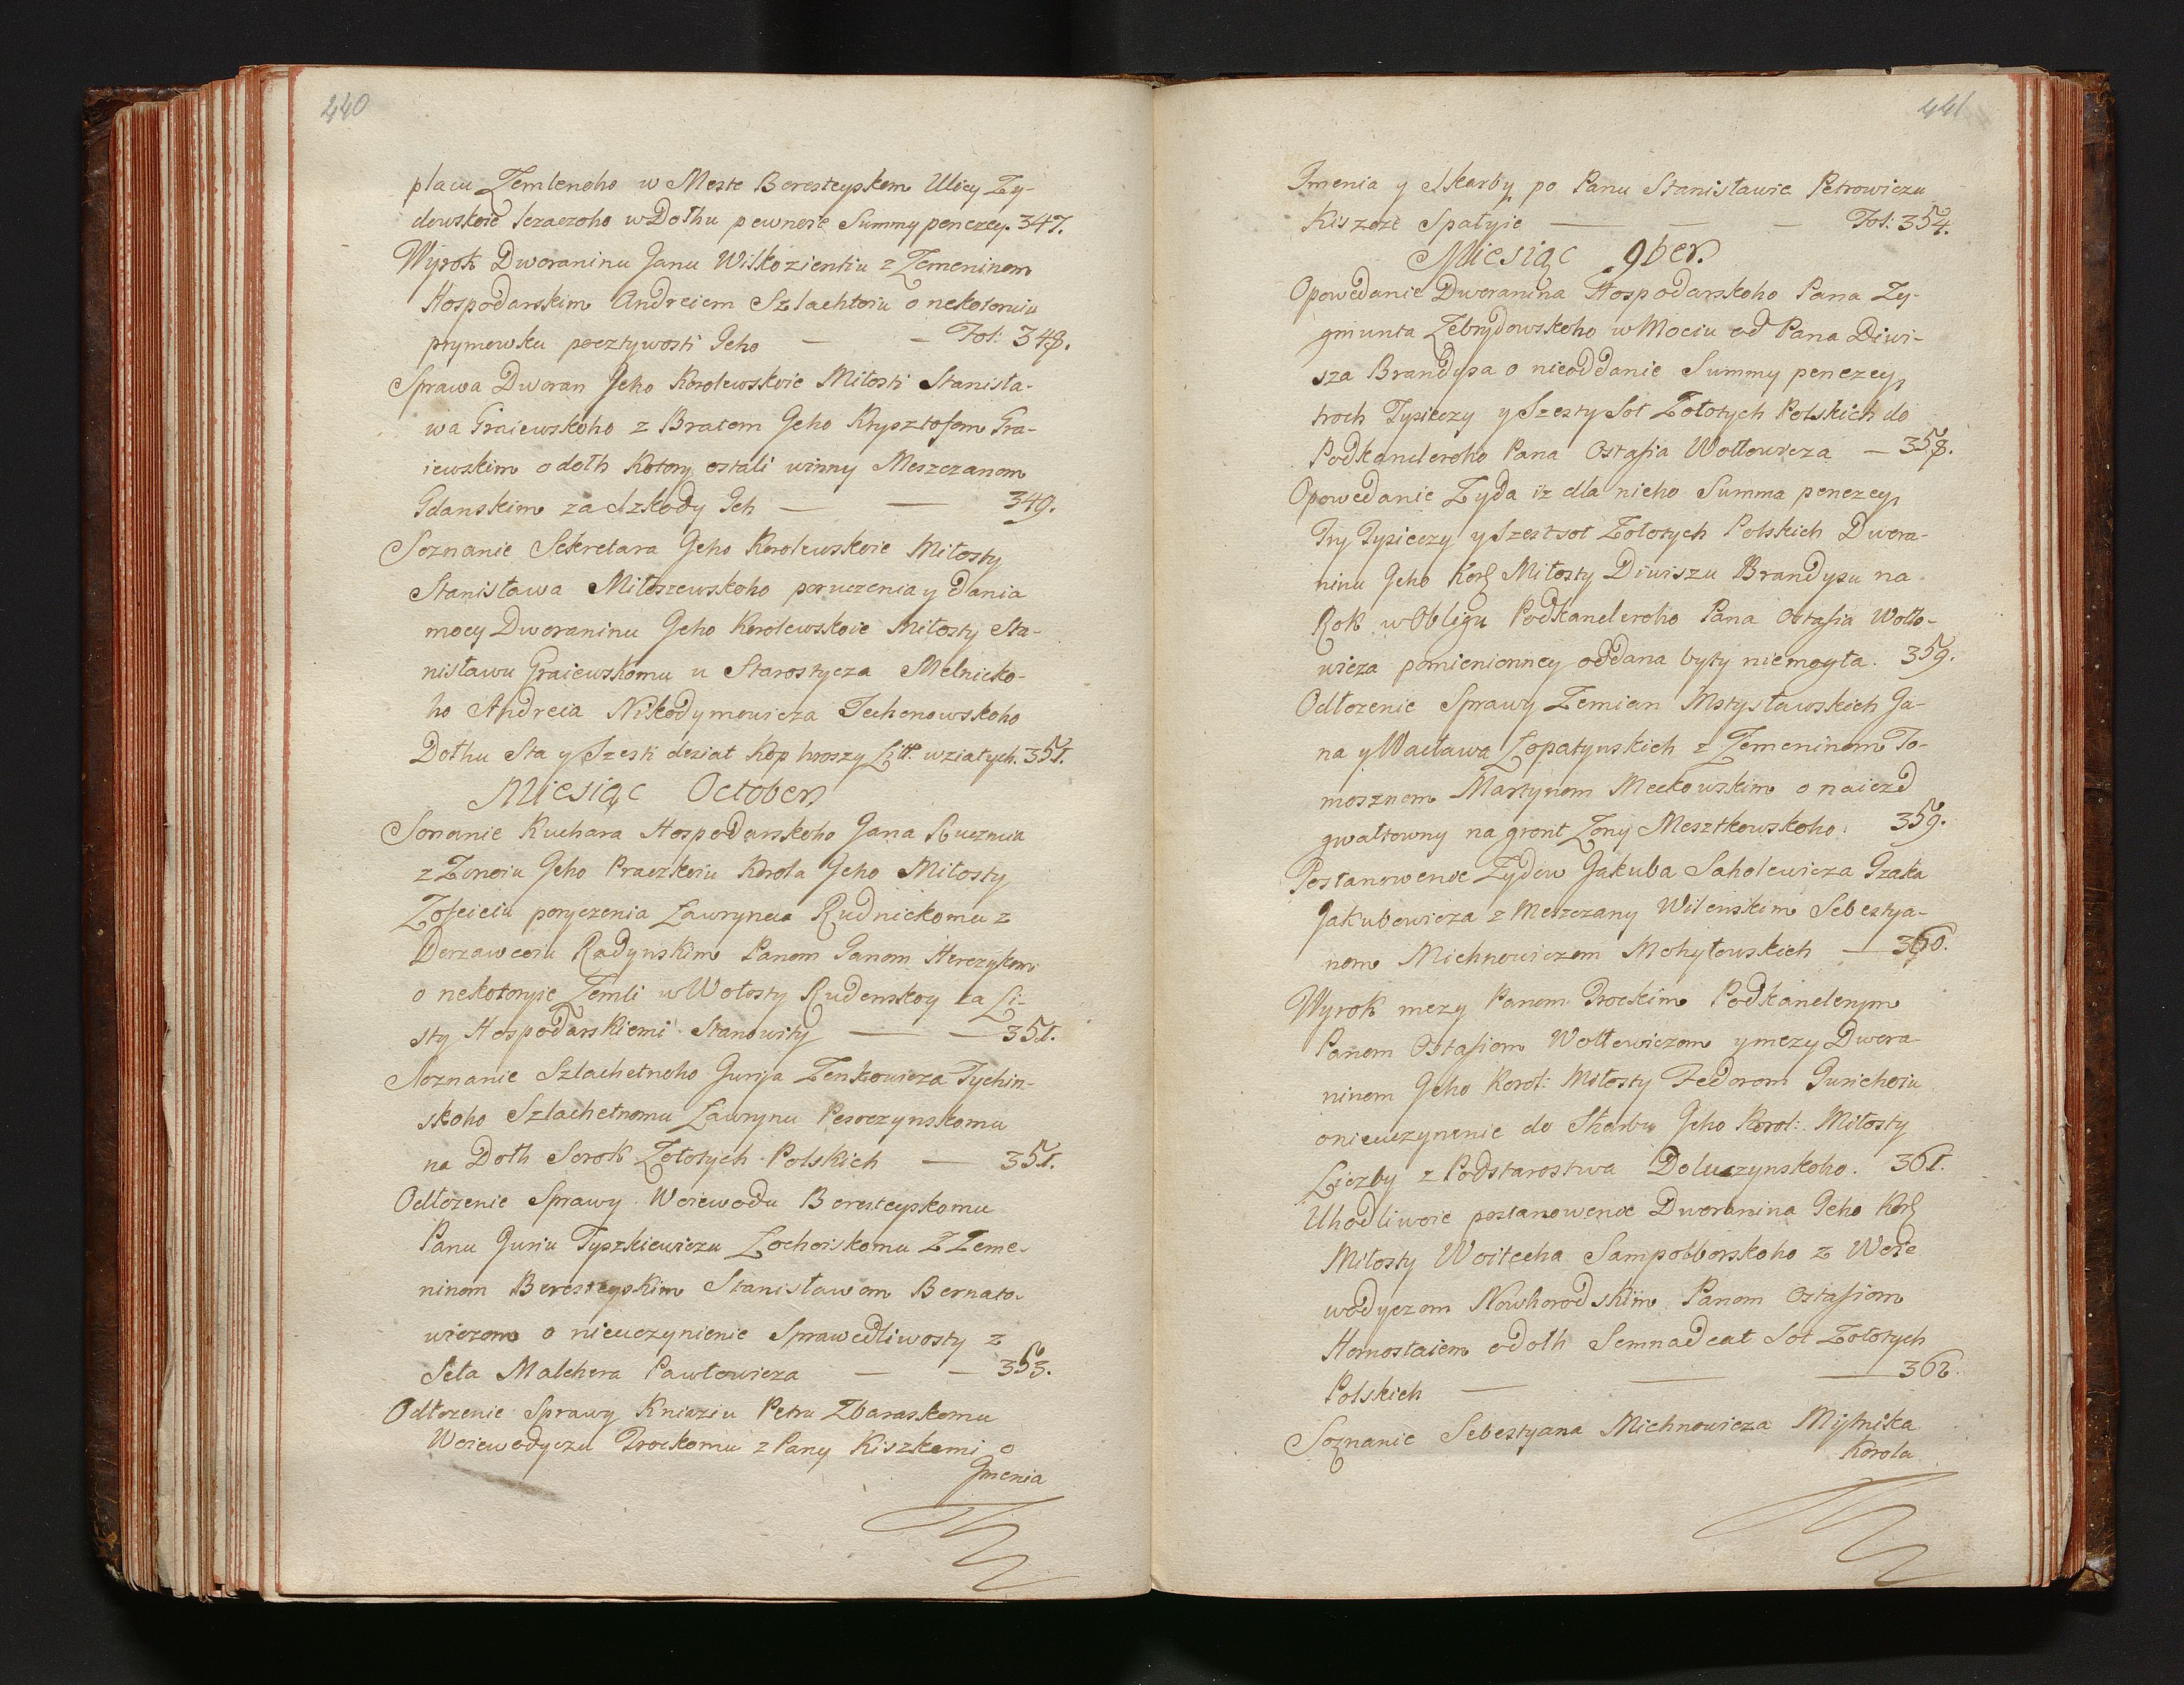 440
placu Zemlenoho w Meste Beresteyskom Ulicy Zy-
dowskoie lezaczoho w Dołhu pewnoie Summy penezey. 347.
Wyrok Dworaninu Janu Wilkozientiu z Zemeninom
Hospodarskim Andreiem Szlachtoiu o nekotoruiu
prymowku pocztywosti Jeho — — Fol: 348.
Sprawa Dworan Jeho Korolewskoie Miłosti Stanisła-
wa Graiewskoho z Bratom Jeho Krysztofom Gra-
iewskim o dołh kotory ostali winny Meszczanom
Gdanskim za Szkody Jch — — 349.
Soznanie Sekretara Jeho Korolewskoie Miłosty
Stanisława Miłoszewskoho poruczenia y dania
mocy Dworaninu Jeho Korolewskoie Miłosty Sta-
nisławu Graiewskomu u Starostycza Melnicko-
ho Andreia Nikodymowicza Techonowskoho
Dołhu Sta y Szesti desiat Kop hroszy Litt. wziatych. 351.
Miesiąc October
Soznanie Kuchara Hospodarskoho Jana
z Zonoiu Jeho Praczkoiu Korola Jeho Miłosty
Zofeieiu poryczenia Ławrynca Rudnickomu z
Derzawcoiu Radynskim Panom Janom Herczykom
o nekotoryie Zemli w Wołosty Rudenskoy za Li-
sty Hospodarskiemi Stanowity — — 351.
Soznanie Szlachetnoho Jurija Zenkowicza Tychin-
skoho Szlachetnomu Ławrynu Pesoczynskomu
na Dołh Sorok Zołotych Polskich — 351.
Odłozenie Sprawy Woiewodu Beresteyskomu
Panu Juriu Tyszkiewiczu Łohoiskomu z Zeme-
ninom Beresteyskim Stanisławom Bernato-
wiczom o nieuczynienie Sprawedliwosty z
Seła Malchera Pawłowicza — — 353.
Odłozenie Sprawy Kniaziu Petru Zbaraskomu
Woiewodyczu Trockomu z Pany Kiszkami o
Jmenia
441
Jmenia y Skarby po Panu Stanisławie Petrowiczu
Kiszoże Spałyie — — — Fol: 354.
Miesiąc 9ber
Opowedanie Dworanina Hospodarskoho Pana Zy-
gmunta Zebrydowskoho w Mociu od Pana Diwi-
sza Brandysa o nieoddanie Summy penezey,
troch Tysieczy y Szesty Sot Zołotych Polskich do
Podkancleroho Pana Ostafia Wołłowicza — 358.
Opowedanie Zyda iz dla nieho Summa penezey,
Try Tysieczy y Szestsot Zołotych Polskich Dwora-
ninu Jeho Korl Miłosty Diwiszu Brandysu na
Rok w Obligu Podkancleroho Pana Ostafia Wołło-
wicza pomienionney oddana byty niemogła. 359.
Odłozenie Sprawy Zemian Mstysławskich Ja-
na y Wacława Łopatynskich z Zemeninom To-
mosznom Martynom Meckowskim o naiezd
gwałtowny na gront Zony Mesztkowskoho. 359.
Postanowenoe Zydow Jakuba Saholewicza Jzaka
Jakubowicza z Meszczany Wilenskim Sebestya-
nom Michnowiczom Mohyłowskich — 360.
Wyrok mezy Panom Trockim Podkanclerym
Panom Ostafiom Wołłowiczom y mezy Dwora-
ninom Jeho Korol: Miłosty Fedorom Jurichoiu
onieuczynenie do Skarbu Jeho Korol: Miłosty
Liczby z Podstarostwa Doluczynskoho. 361.
Uhodliwoie postanowenoe Dworanina Jeho Korl
Miłosty Woitecha Sampolborskoho z Woie
wodyczom Nowhorodskim Panom Ostafiom
Hornostaiem o dołh Semnadcat Sot Zołotych
Polskich — — — 362.
Soznanie Sebestyana Michnowicza Mytnika
Korola